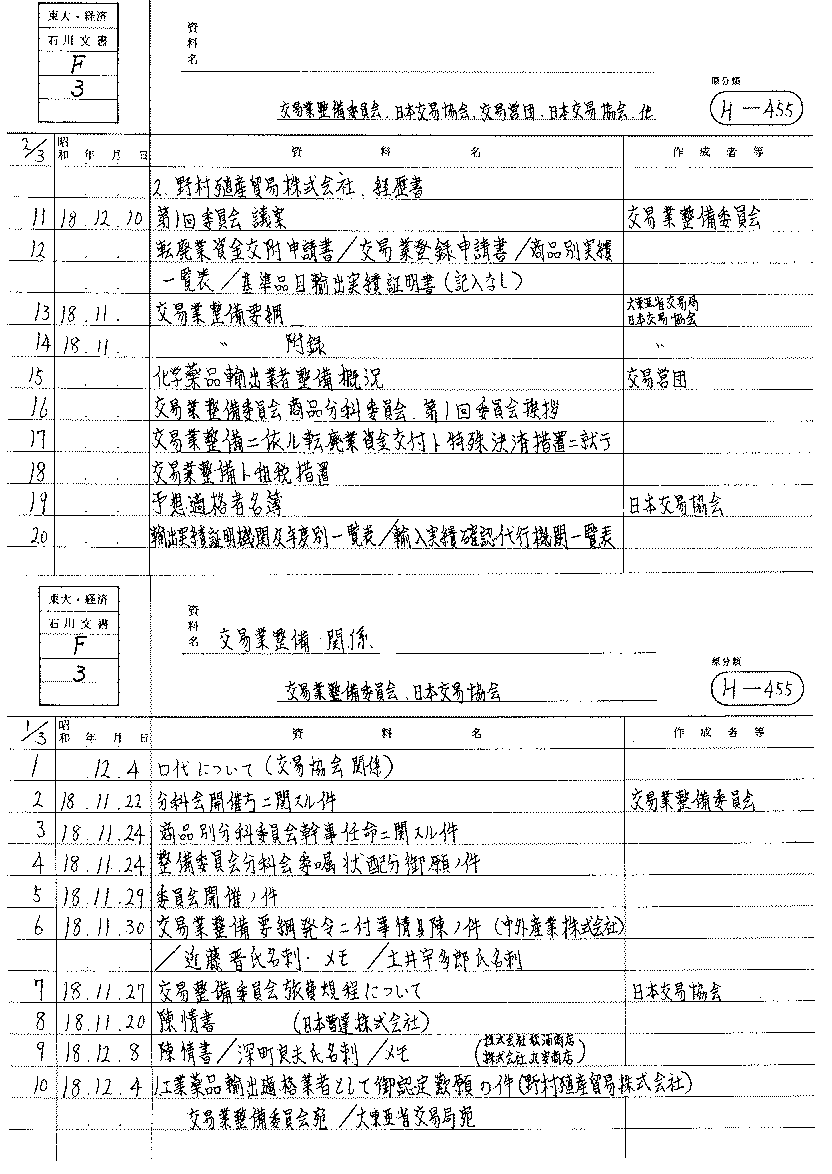 東大・経済
石川文書
F
3
資料名
交易業整備委員会、日本交易協会、交易営団、日本交易協会、他
原分類
H-455
2/3 昭和 年 月 日 資料名 作成者等
2. 野村殖産貿易株式会社、経歴書
11 18.12.10 第1回委員会 議案 交易業整備委員会
12 . . 転廃業資金交附申請書/交易業登録申請書/商品別実績
一覧表/基準品目輸出実績証明書(記入なし)
13 18.11. 交易業整備要綱 大東亜省交易局
日本交易協会
14 18.11. 〃 附録 〃
15 . . 化学薬品輸出業者整備概況 交易営団
16 . . 交易業整備委員会商品分科委員会、第1回委員会挨拶
17 . . 交易業整備ニ依ル転廃業資金交付ト特殊決済措置ニ就テ
18 . . 交易業整備ト租税措置
19 . . 予想適格者名簿 日本交易協会
20 . . 輸出実績証明機関及年度別一覧表/輸入実績確認代行機関一覧表
東大・経済
石川文書
F
3
資料名 交易業整備 関係
交易業整備委員会、日本交易協会
原分類
H-455
1/3 昭和 年 月 日 資料名 作成者等
1 12.4 口代について(交易協会関係)
2 18.11.22 分科会開催方ニ関スル件 交易業整備委員会
3 18.11.24 商品別分科委員会幹事任命ニ関スル件
4 18.11.24 整備委員会分科会委嘱状配分御願ノ件
5 18.11.29 委員会開催ノ件
6 18.11.30 交易業整備要綱発令ニ付事情具陳ノ件(中外産業株式会社)
/近藤晋氏名刺・メモ/土井宇多郎氏名刺
7 18.11.27 交易整備委員会旅費規程について 日本交易協会
8 18.11.20 陳情書 (日本曹達株式会社)
9 18.12.8 陳情書/深町良夫氏名刺/メモ (株式会社 商店
株式会社 商店)
10 18.12.4 1.工業薬品輸出適格業者として御認定歎願の件(野村殖産貿易株式会社)
交易業整備委員会宛/大東亜省交易局宛